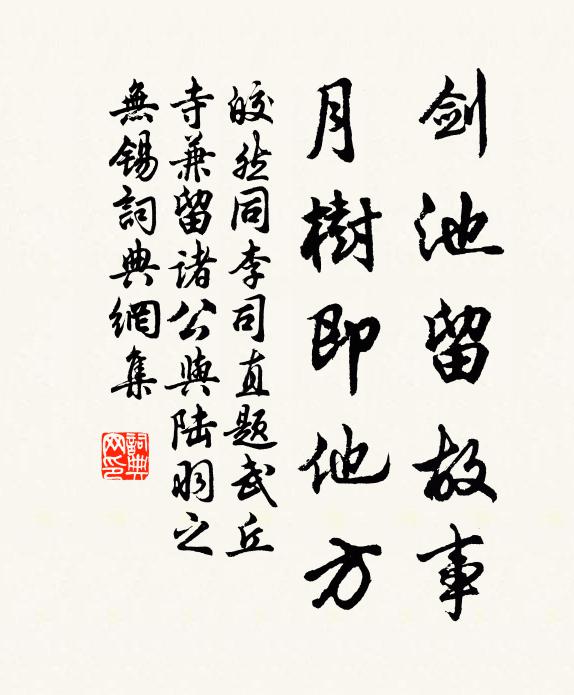 剑池留故事
月樹即他方
皎然同李司直题武丘
寺兼留诸公與陆羽之
無锡詞典網集
詞典网印